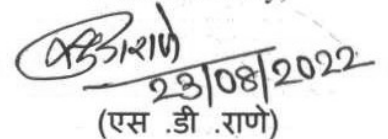 23/08/2022
(एस .डी .राणे)